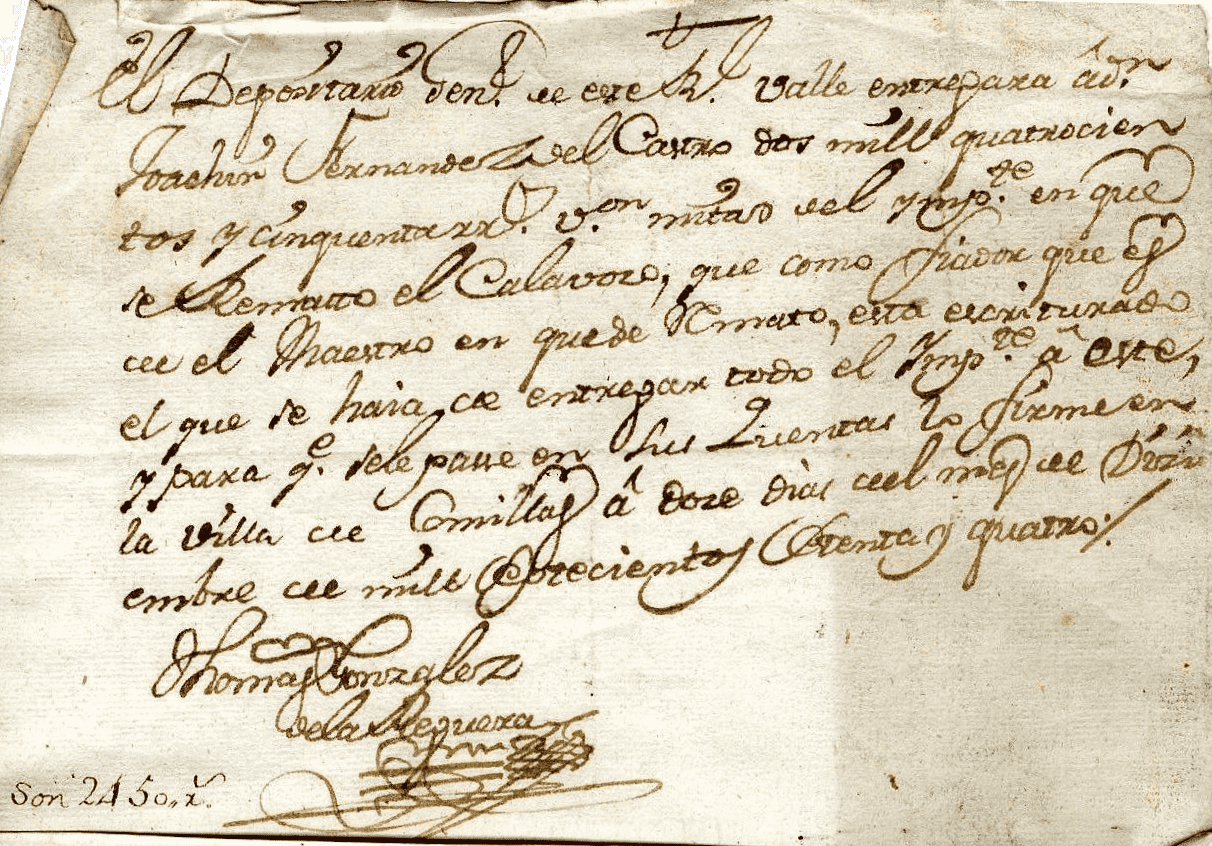 El Depositario Gen.l de este R.l Valle entregara a d.n
Joachin Fernandez del Castro dos mill quatrocien
tos y cinquenta rr.s v.on mitad del ymp.te en que
se Rematto el Calavozo, que como fiador que es
de el Maestro en quede Remato, esta escriturado
el que se haia de entregar todo el Ymp.te â este,
y para q.e sele passe en sus Quentas lo firme en
la villa de Comillas â doze dias del mes de Dizi
embre de mill Setecientos Ochenta y quatro./
Thomas Gonzalez
de la Reguera
Son 2450 r.s